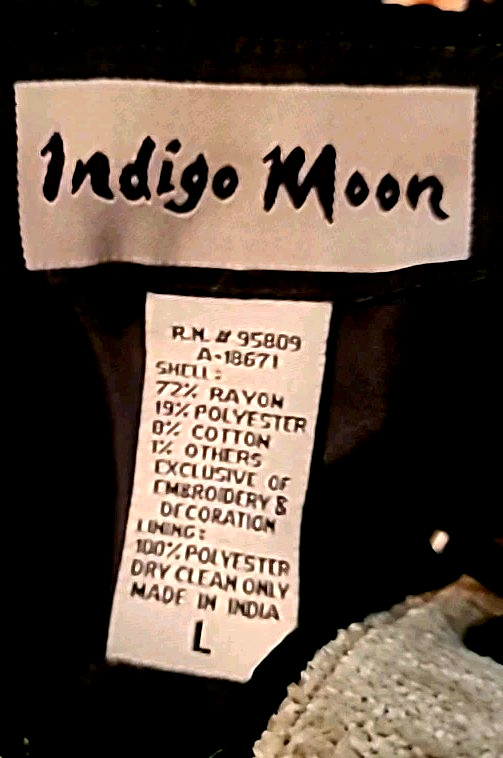 Indigo Moon
R.N. # 95809
A-18671
SHELL:
72% RAYON
19% POLYESTER
8% COTTON
1% OTHERS
EXCLUSIVE OF
EMBROIDERY &
DECORATION
LINING:
100% POLYESTER
DRY CLEAN ONLY
MADE IN INDIA
L